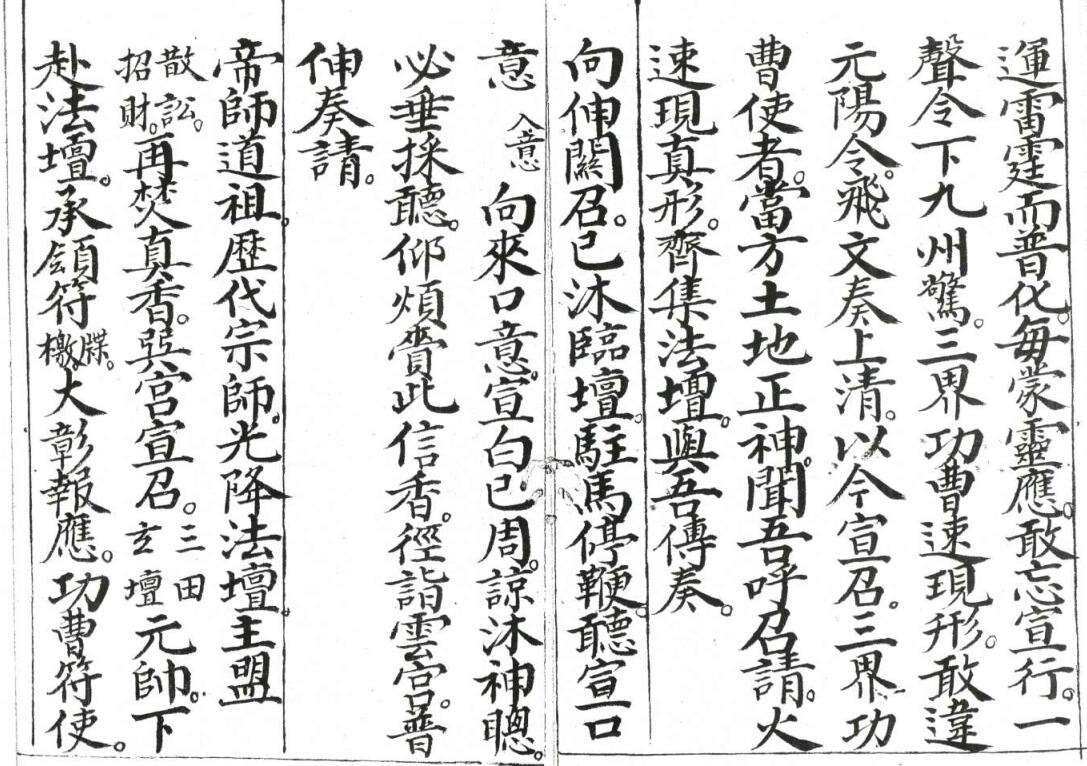 運雷霆而普化。每蒙靈應。敢忘宣行。一
聲令下九州驚。三界功曹速現形。敢違
元陽令。飛文奏上清。以今宣召。三界功
曹使者。當方土地正神。聞吾呼召請。火
速現真形。齊集法壇。與吾傳奏。
向伸關召。已沐臨壇。駐馬停鞭。聽宣口
意 入意 向來口意。宣白已周。諒沐神聰。
必垂採聽。仰煩賫此信香。徑詣雲宮。普
伸奏請。
帝師道祖。歷代宗師。光降法壇。主盟
散訟。招財。再焚真香。巽宮宣召。三田玄壇元帥。下
赴法壇。承領符牒。檄。大彰報應。功曹符使。